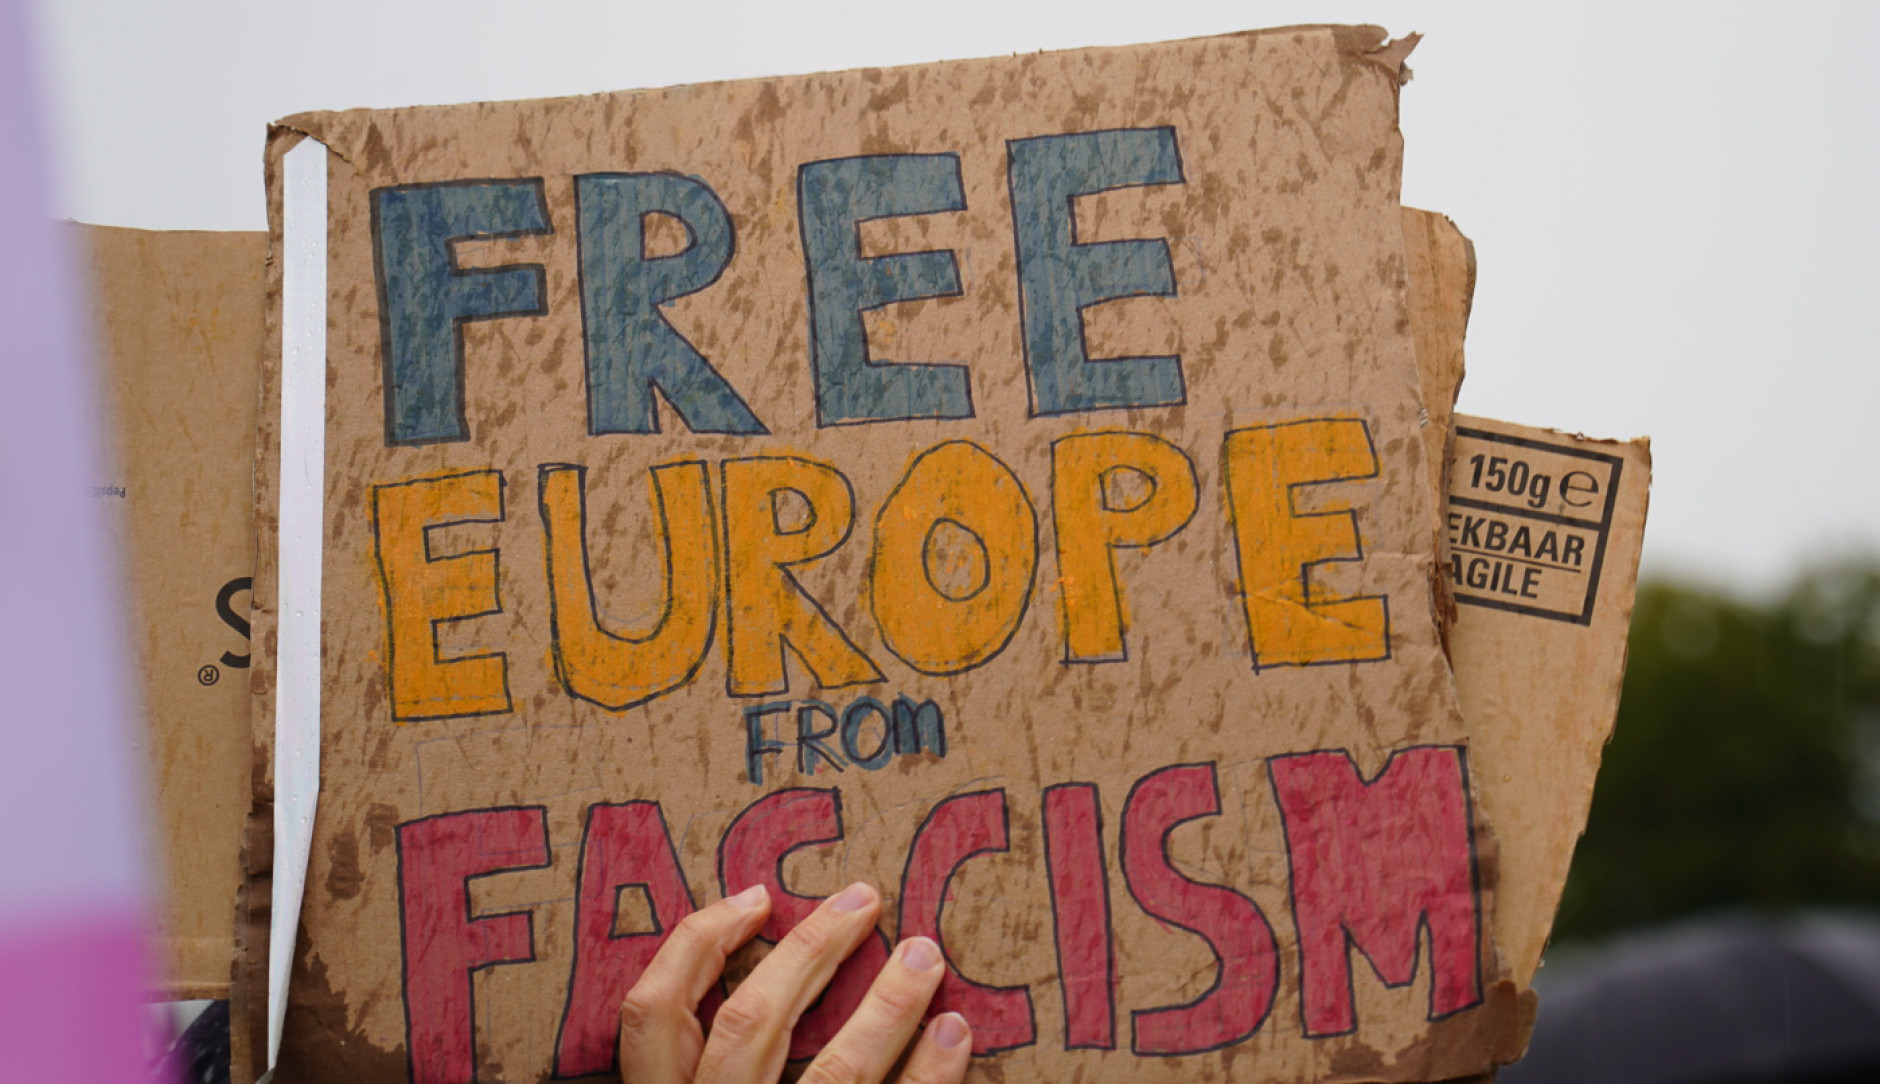 FREE
EUROPE
FROM
FASCISM
150g ℮
EKBAAR
AGILE
S
®